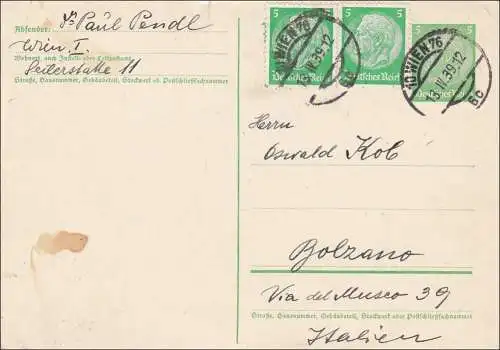 Absender: Dr Paul Pendl
Wien, I.
Wohnort, auch Zustell- oder Leitpostamt
Seilerstätte 11
Straße, Hausnummer, Gebäudeteil, Stockwerk od. Postschließfachnummer
5 5 5
Deutsches Reich Deutsches Reich Deutsches Reich
WIEN 76
10 WIEN 76
39.-12
6c
Herrn
Oswald Kob
Bolzano
Via del Museo 39
Straße, Hausnummer, Gebäudeteil, Stockwerk oder Postschließfachnummer
Italien